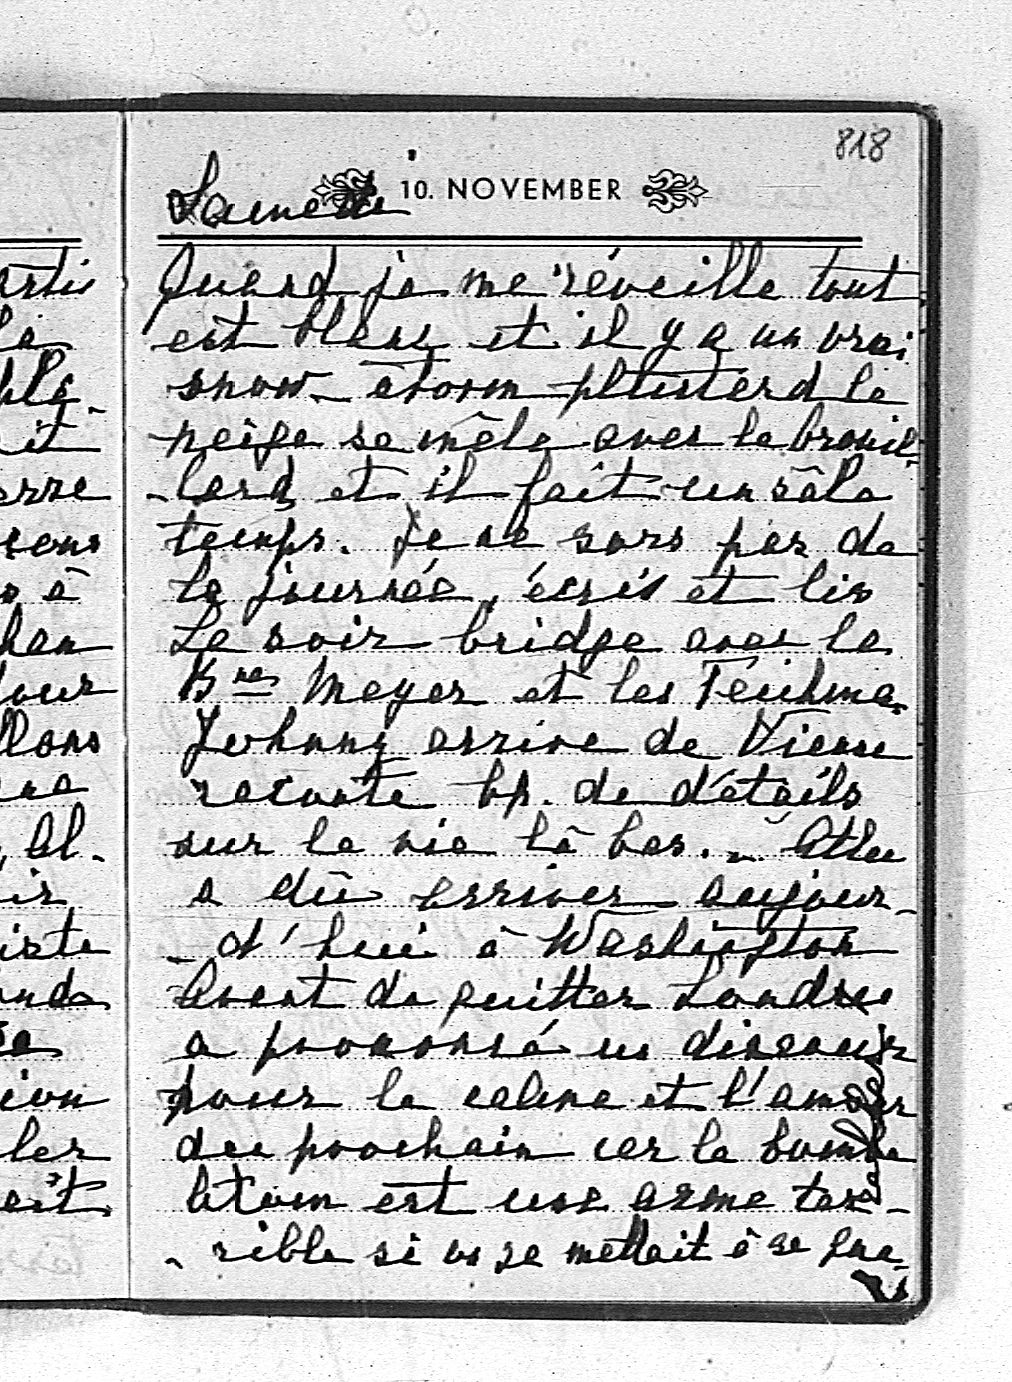 818
10. NOVEMBER
Samedi
Quand je me réveille tout
est blanc et il y a un vrai
snow-storm plustard la
neige se mêle avec le brouil-
-lard et il fait un sâle
temps. Je ne sors pas de
la journée, écris et lis
Le soir bridge avec la
Bne Meyer et les Teichma.
Johnny arrive de Vienne
raconte bp. de détails
sur la vie là bas. - Atlee
a dû arriver aujour-
- d'hui à Washington
Avant de quitter Londres
a prononcé un discours
pour le calme et l'amour
du prochain car la bombe
Atom est une arme ter-
- rible si on se mettait à se
artis
la
ple
it
erre
à
our
llons
Al.
ir
iste
ion
ler